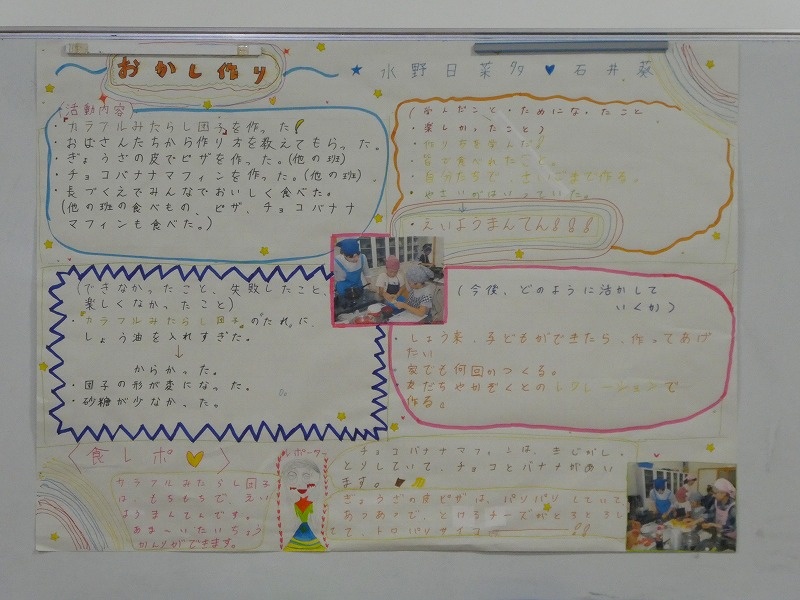 おかし作り
水野日菜多 ♥ 石井葵
(活動内容)
・カラフルみたらし団子を作った!
・おばさんたちから作り方を教えてもらった。
・ぎょうざの皮でピザを作った。(他の班)
・チョコバナナマフィンを作った。(他の班)
・長づくえでみんなでおいしく食べた。
(他の班の食べもの、ピザ、チョコバナナ
マフィンも食べた。)
(学んだこと・ためになったこと
・楽しかったこと)
・作り方を学んだ!
・皆で食べれたこと。
・自分たちで、さいごまで作る。
・やさいがはいっていた。
↓
・えいようまんてん!!!
(できなかったこと、失敗したこと、
楽しくなかったこと)
・"カラフルみたらし団子"の"たれ"に、
しょう油を入れすぎた。
↓
からかった。
・団子の形が変になった。
・砂糖が少なかった。
(今後、どのように活かして
いくか)
・しょう来、子どもができたら、作ってあげ
たい
・家でも何回かつくる。
・友だちやかぞくとのレクレーションで
作る。
〈食レポ♥〉
カラフルみたらし団子
は、もちもちで、えい
ようまんてんです。
かんりができます。
レポーター
チョコバナナマフィンは、きじがしっ
とりしていて、チョコとバナナがあい
ます。
ぎょうざの皮ピザは、パリパリしていて
あつあつで、とけるチーズがとろとろし